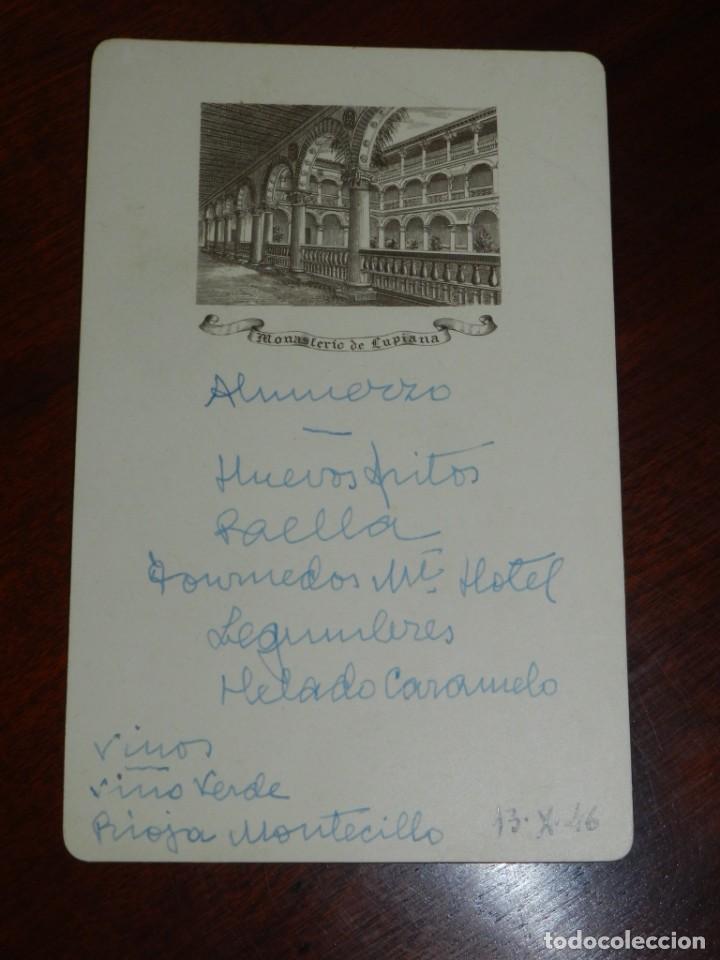 Monasterio de Lupiana
Almuerzo
Huevos fritos
Paella
Tournedos Mt. Hotel
Legumbres
Helado Caramelo
Vinos
Vino Verde
Rioja Montecillo
13·X·46
todocoleccion